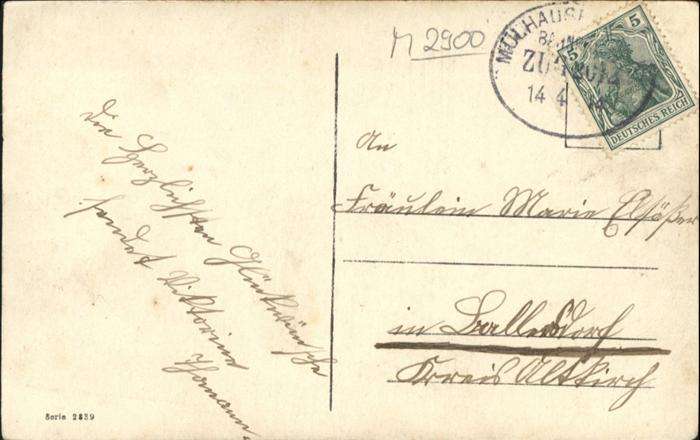 M 2900
MÜLHAUSE
BAHNP
ZUG
14 4 14
5
5
DEUTSCHES REICH
die Herzlichsten Glückwünsche
sendet Viktorine
An
Fräulein Marie Elsäßer
in Ballersdorf
Kreis Altkirch
Serie 2839